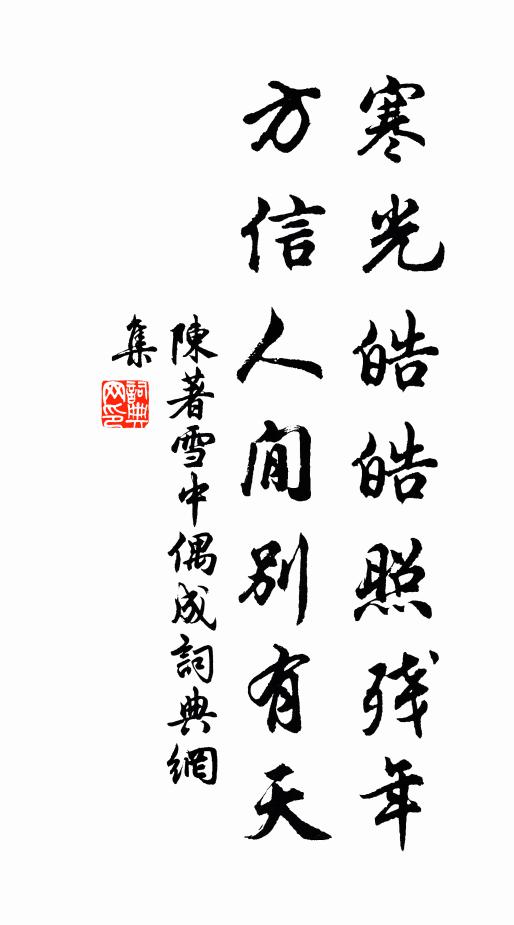 寒光皓皓照残年
方信人間別有天
陳著雪中偶成詞典網
集
詞典
网印